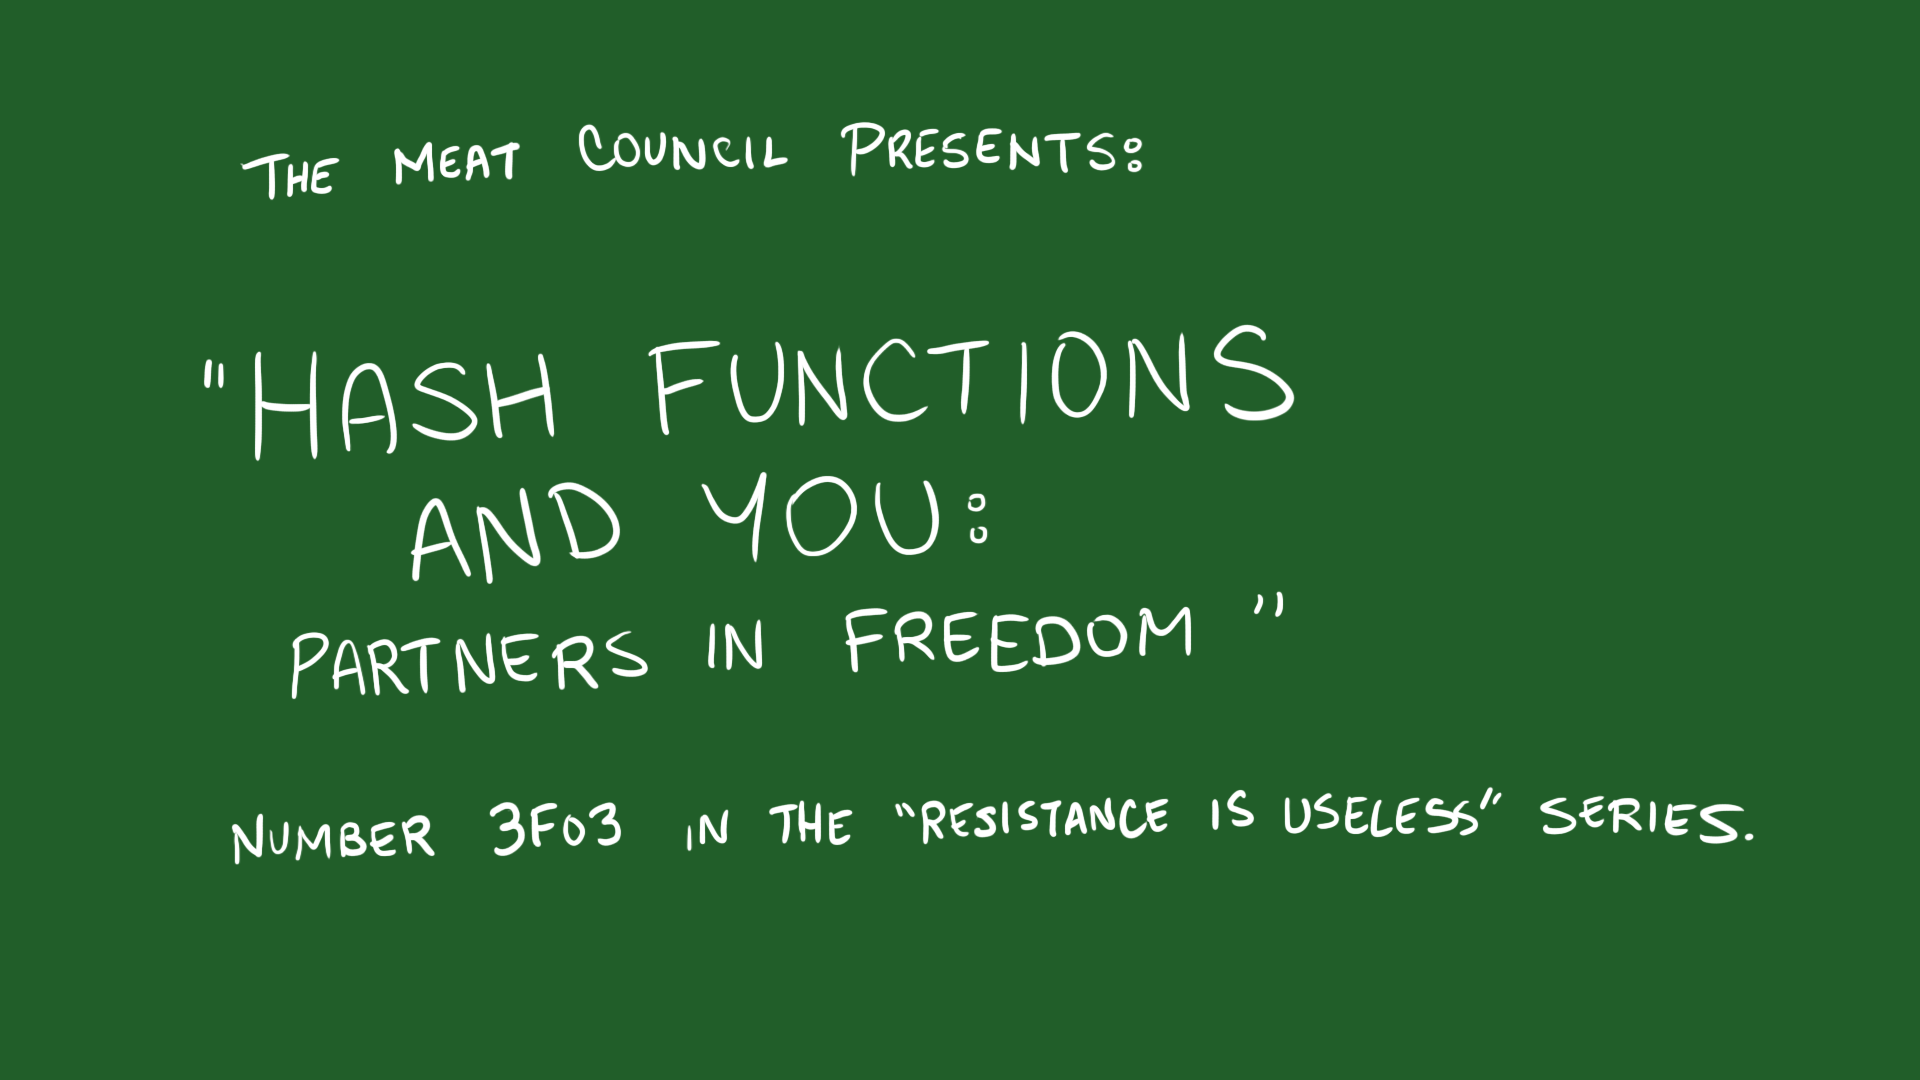 THE MEAT COUNCIL PRESENTS:
"HASH FUNCTIONS
AND YOU:
PARTNERS IN FREEDOM"
NUMBER 3F03 IN THE "RESISTANCE IS USELESS" SERIES.